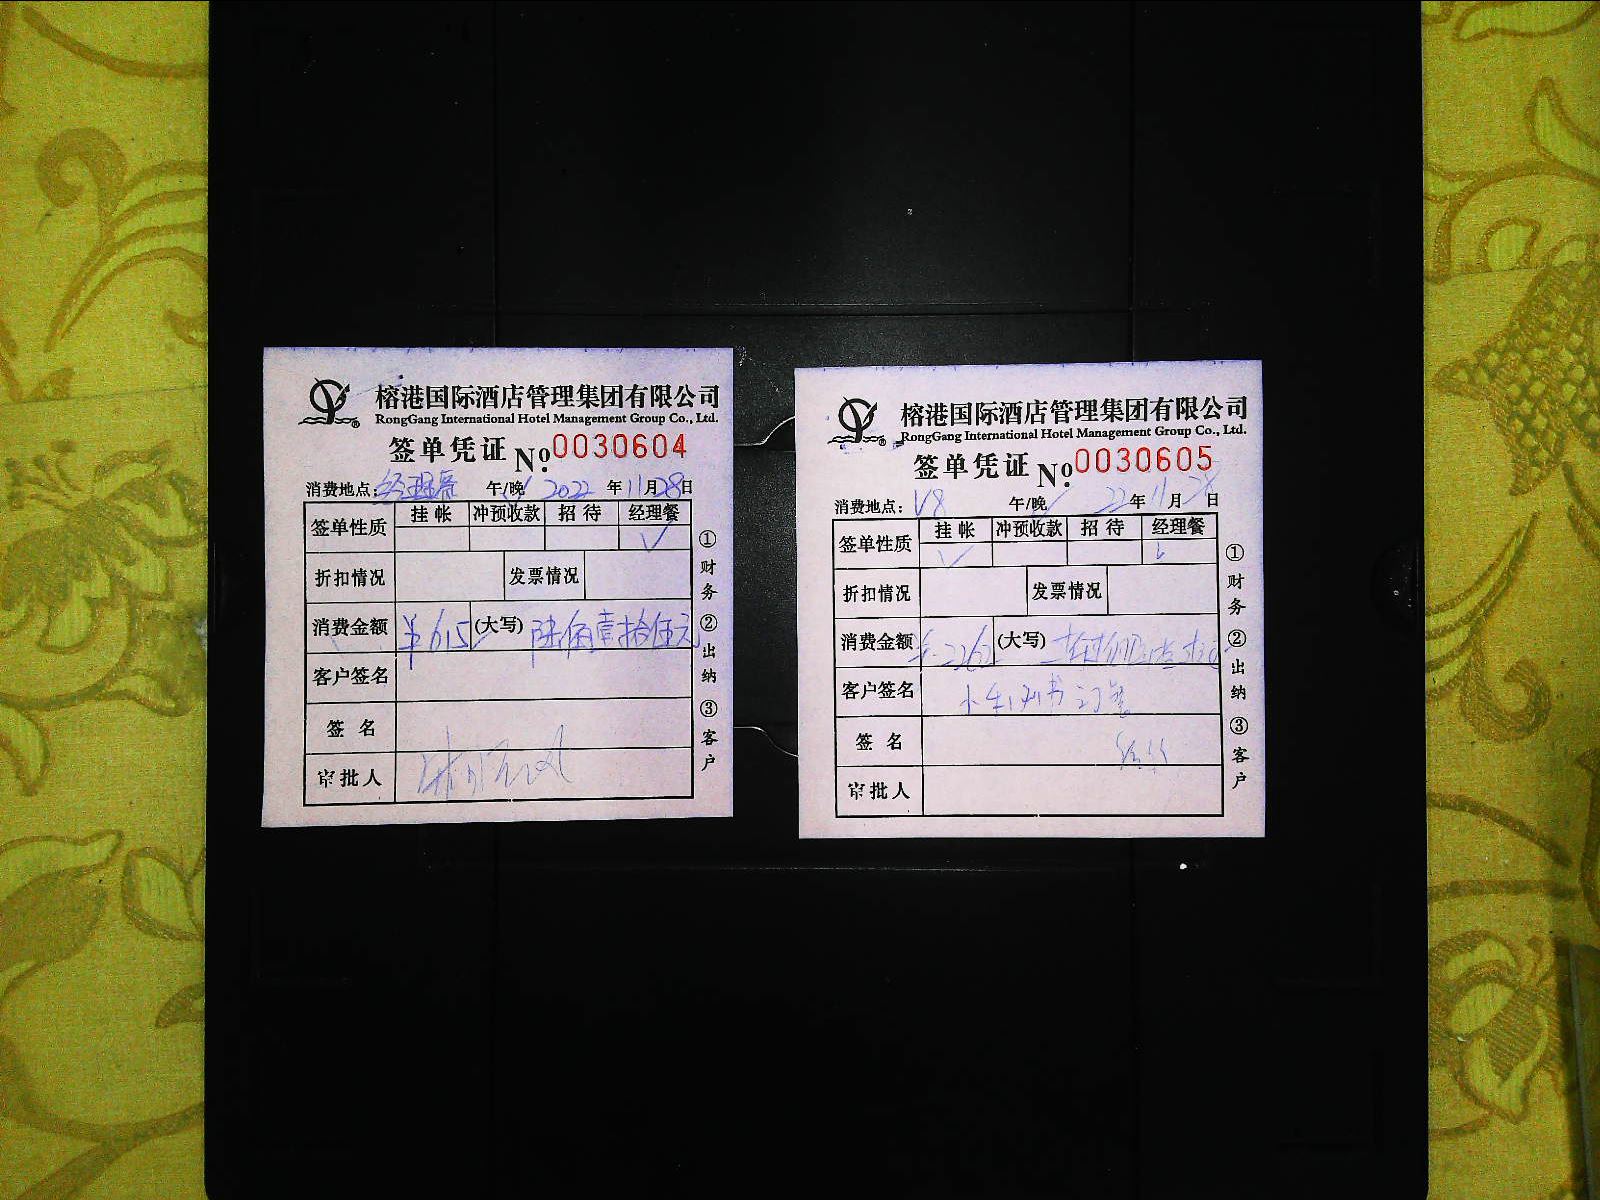 榕港国际酒店管理集团有限公司
RongGang International Hotel Management Group Co., Ltd.
签单凭证 No.0030604
消费地点：经理餐 午/晚 2022年11月28日
签单性质 挂帐 冲预收款 招待 经理餐
折扣情况 发票情况
消费金额 ¥615 (大写) 陆佰壹拾伍元
客户签名
签名
审批人
①财务 ②出纳 ③客户
榕港国际酒店管理集团有限公司
RongGang International Hotel Management Group Co., Ltd.
签单凭证 No.0030605
消费地点：V8 午/晚 22年11月28日
签单性质 挂帐 冲预收款 招待 经理餐
折扣情况 发票情况
消费金额 (大写)
客户签名
签名
审批人
①财务 ②出纳 ③客户